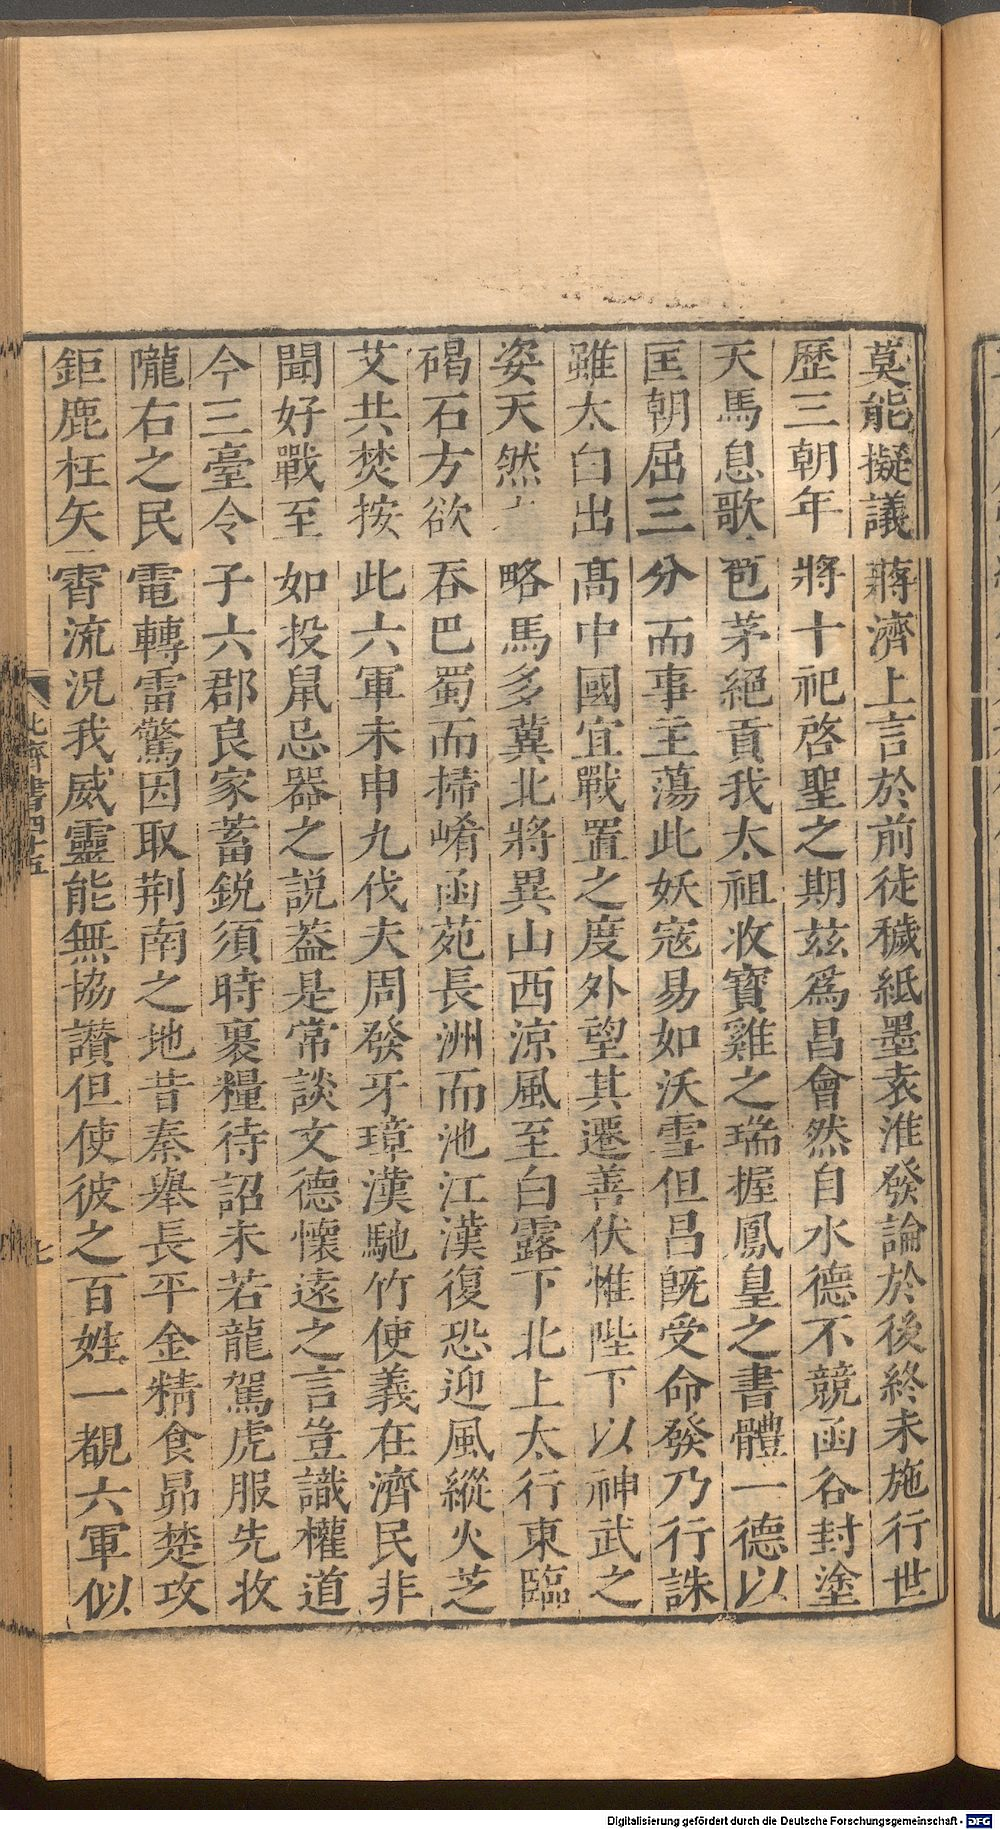 莫能擬議蔣濟上言於前徒穢紙墨袁淮發論於後終未施行世
歷三朝年將十祀啓聖之期茲爲昌會然自水德不競函谷封塗
天馬息歌苞茅絕貢我太祖收寳雞之瑞握鳳皇之書體一德以
匡朝屈三分而事主蕩此妖寇易如沃雪但昌旣受命發乃行誅
雖太白出高中國宜戰置之度外望其遷善伏惟陛下以神武之
姿天然略馬多冀北將異山西涼風至白露下北上太行東臨
碣石方欲吞巴蜀而掃崤函苑長洲而池江漢復恐迎風縱火芝
艾共焚按此六軍未申九伐夫周發牙璋漢馳竹使義在濟民非
聞好戰至如投鼠忌器之説葢是常談文德懷遠之言豈識權道
今三臺令子六郡良家蓄鋭須時裹糧待詔未若龍駕虎服先收
隴右之民電轉雷驚因取荆南之地昔秦舉長平金精食昴楚攻
鉅鹿枉矢霄流況我威靈能無協讃但使彼之百姓一覩六軍似
北齊書四十五
七
Digitalisierung gefördert durch die Deutsche Forschungsgemeinschaft - DFG